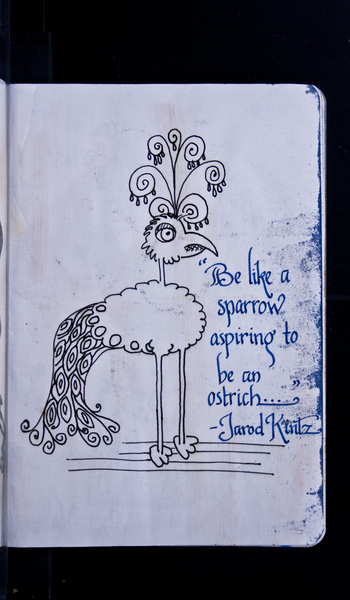 "Be like a
sparrow
aspiring to
be an
ostrich....."
-Jarod Kintz